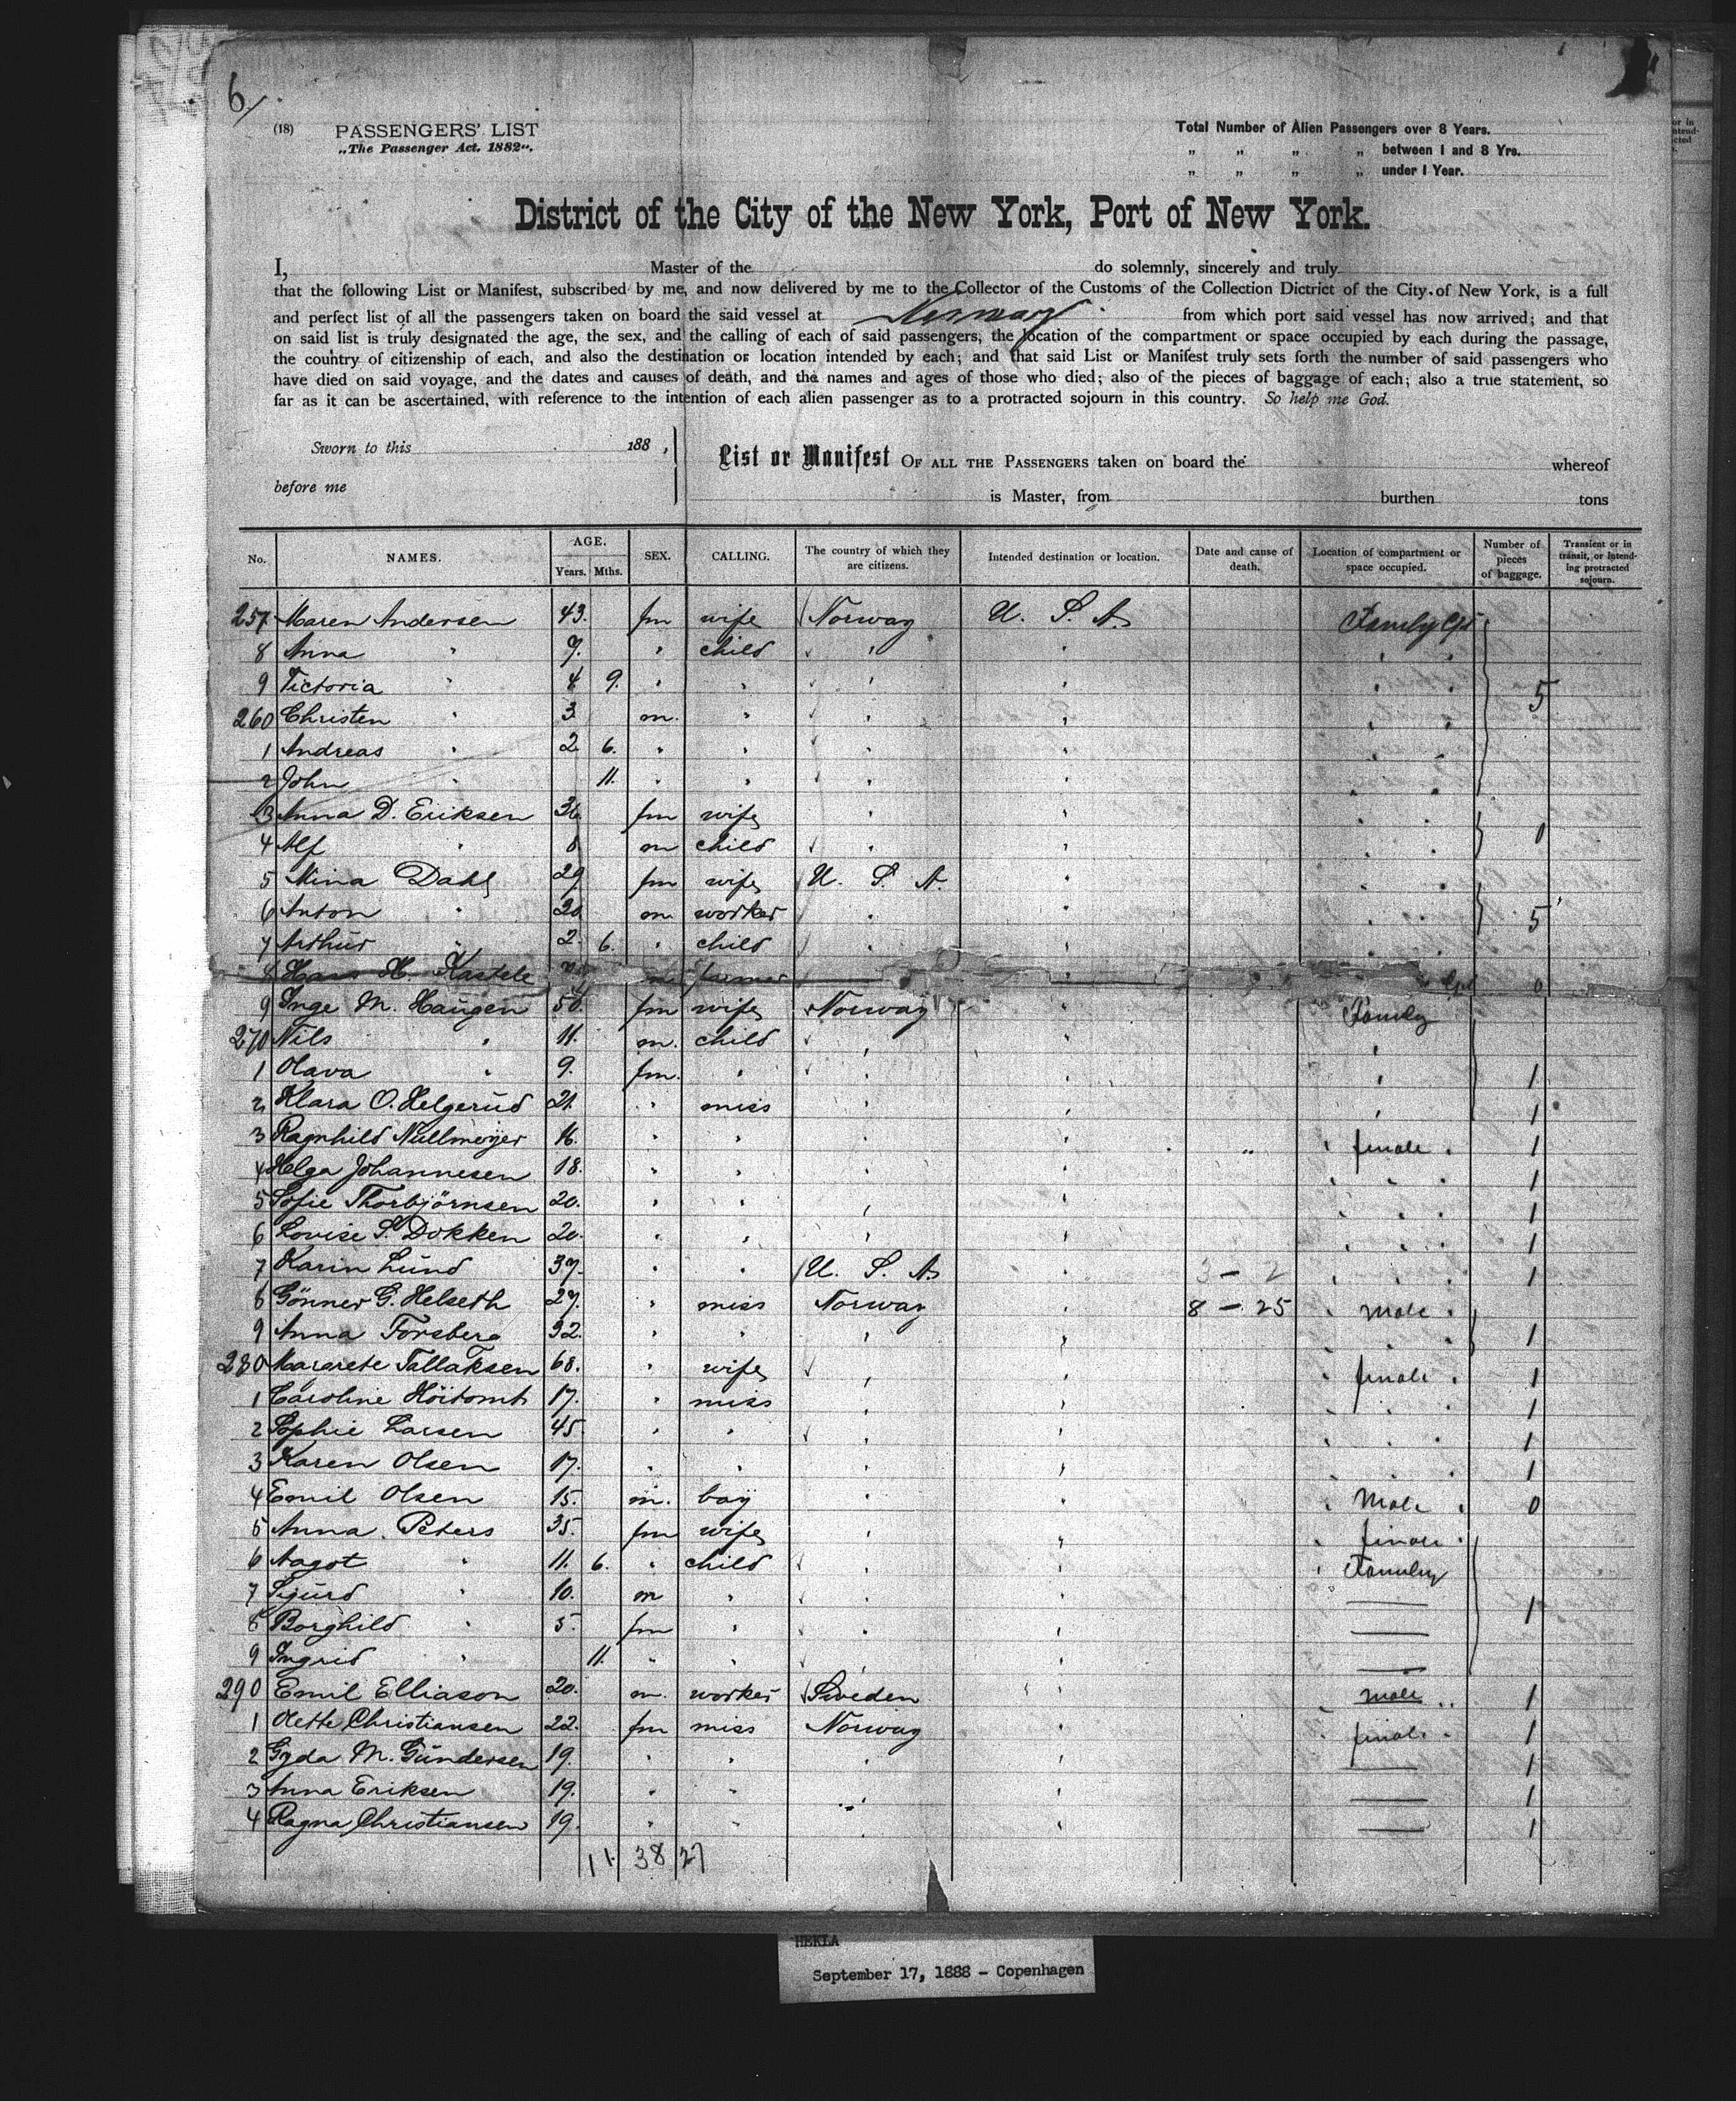 6/
(18) PASSENGERS' LIST
„The Passenger Act. 1882“.
Total Number of Alien Passengers over 8 Years.
„ „ „ „ between 1 and 8 Yrs.
„ „ „ „ under 1 Year.
District of the City of the New York, Port of New York.
I, Master of the do solemnly, sincerely and truly
that the following List or Manifest, subscribed by me, and now delivered by me to the Collector of the Customs of the Collection District of the City of New York, is a full
and perfect list of all the passengers taken on board the said vessel at Norway from which port said vessel has now arrived; and that
on said list is truly designated the age, the sex, and the calling of each of said passengers, the location of the compartment or space occupied by each during the passage,
the country of citizenship of each, and also the destination or location intended by each; and that said List or Manifest truly sets forth the number of said passengers who
have died on said voyage, and the dates and causes of death, and the names and ages of those who died; also of the pieces of baggage of each; also a true statement, so
far as it can be ascertained, with reference to the intention of each alien passenger as to a protracted sojourn in this country. So help me God.
Sworn to this 188 ,
before me
List or Manifest OF ALL THE PASSENGERS taken on board the whereof
is Master, from burthen tons
No. NAMES. AGE. Years. Mths. SEX. CALLING. The country of which they are citizens. Intended destination or location. Date and cause of death. Location of compartment or space occupied. Number of pieces of baggage. Transient or in transit, or intending protracted sojourn.
257 Maren Andersen 43. fm wife Norway U. S. A. Family
8 Anna " 9. " child " " "
9 Victoria " 4 9. " " " " " 5
260 Christen " 3 m. " " " "
1 Andreas " 2 6. " " " " "
2 John " 11. " " " " "
3 Anna D. Eriksen 36 fm wife " " "
4 Alf " 8 m child " " " 1
5 Mina Dahl 29 fm wife U. S. A. " "
6 Anton " 20 m. worker " " " 5
7 Arthur " 2. 6. " child " " "
8 Hans H. Kastele m farmer 0
9 Inge M. Haugen 50. fm wife Norway " Family
270 Nils " 11. m. child " " "
1 Olava " 9. fm. " " " " 1
2 Klara O. Helgerud 21. " miss " " " 1
3 Ragnhild Nullmeyer 16. " " " " female 1
4 Helga Johannesen 18. " " " " " 1
5 Sofie Thorbjörnsen 20. " " " " " 1
6 Lovise S. Dokken 20. " " " " " 1
7 Karin Lund 37. " " U. S. A. " 3 - 2 " 1
8 Gönner G. Helseth 27. " miss Norway " 8 - 25 male
9 Anna Forsberg 32. " " " " " 1
280 Margrete Tallaksen 68. " wife " " female 1
1 Caroline Höitomt 17. " miss " " " 1
2 Sophie Larsen 45. " " " " " 1
3 Karen Olsen 17. " " " " " 1
4 Emil Olsen 15. m. boy " " Male 0
5 Anna Peters 35. fm wife " " female
6 Aagot " 11. 6. " child " " Family
7 Sigurd " 10. m " " " — 1
8 Borghild " 5. fm " " " —
9 Ingrid " 11. " " " " —
290 Emil Elliason 20. m. worker Sweden " male 1
1 Olette Christiansen 22. fm miss Norway " female 1
2 Gyda M. Gundersen 19. " " " " — 1
3 Anna Eriksen 19. " " " " — 1
4 Ragna Christiansen 19. " " " " — 1
11. 38 27
HEKLA
September 17, 1888 - Copenhagen